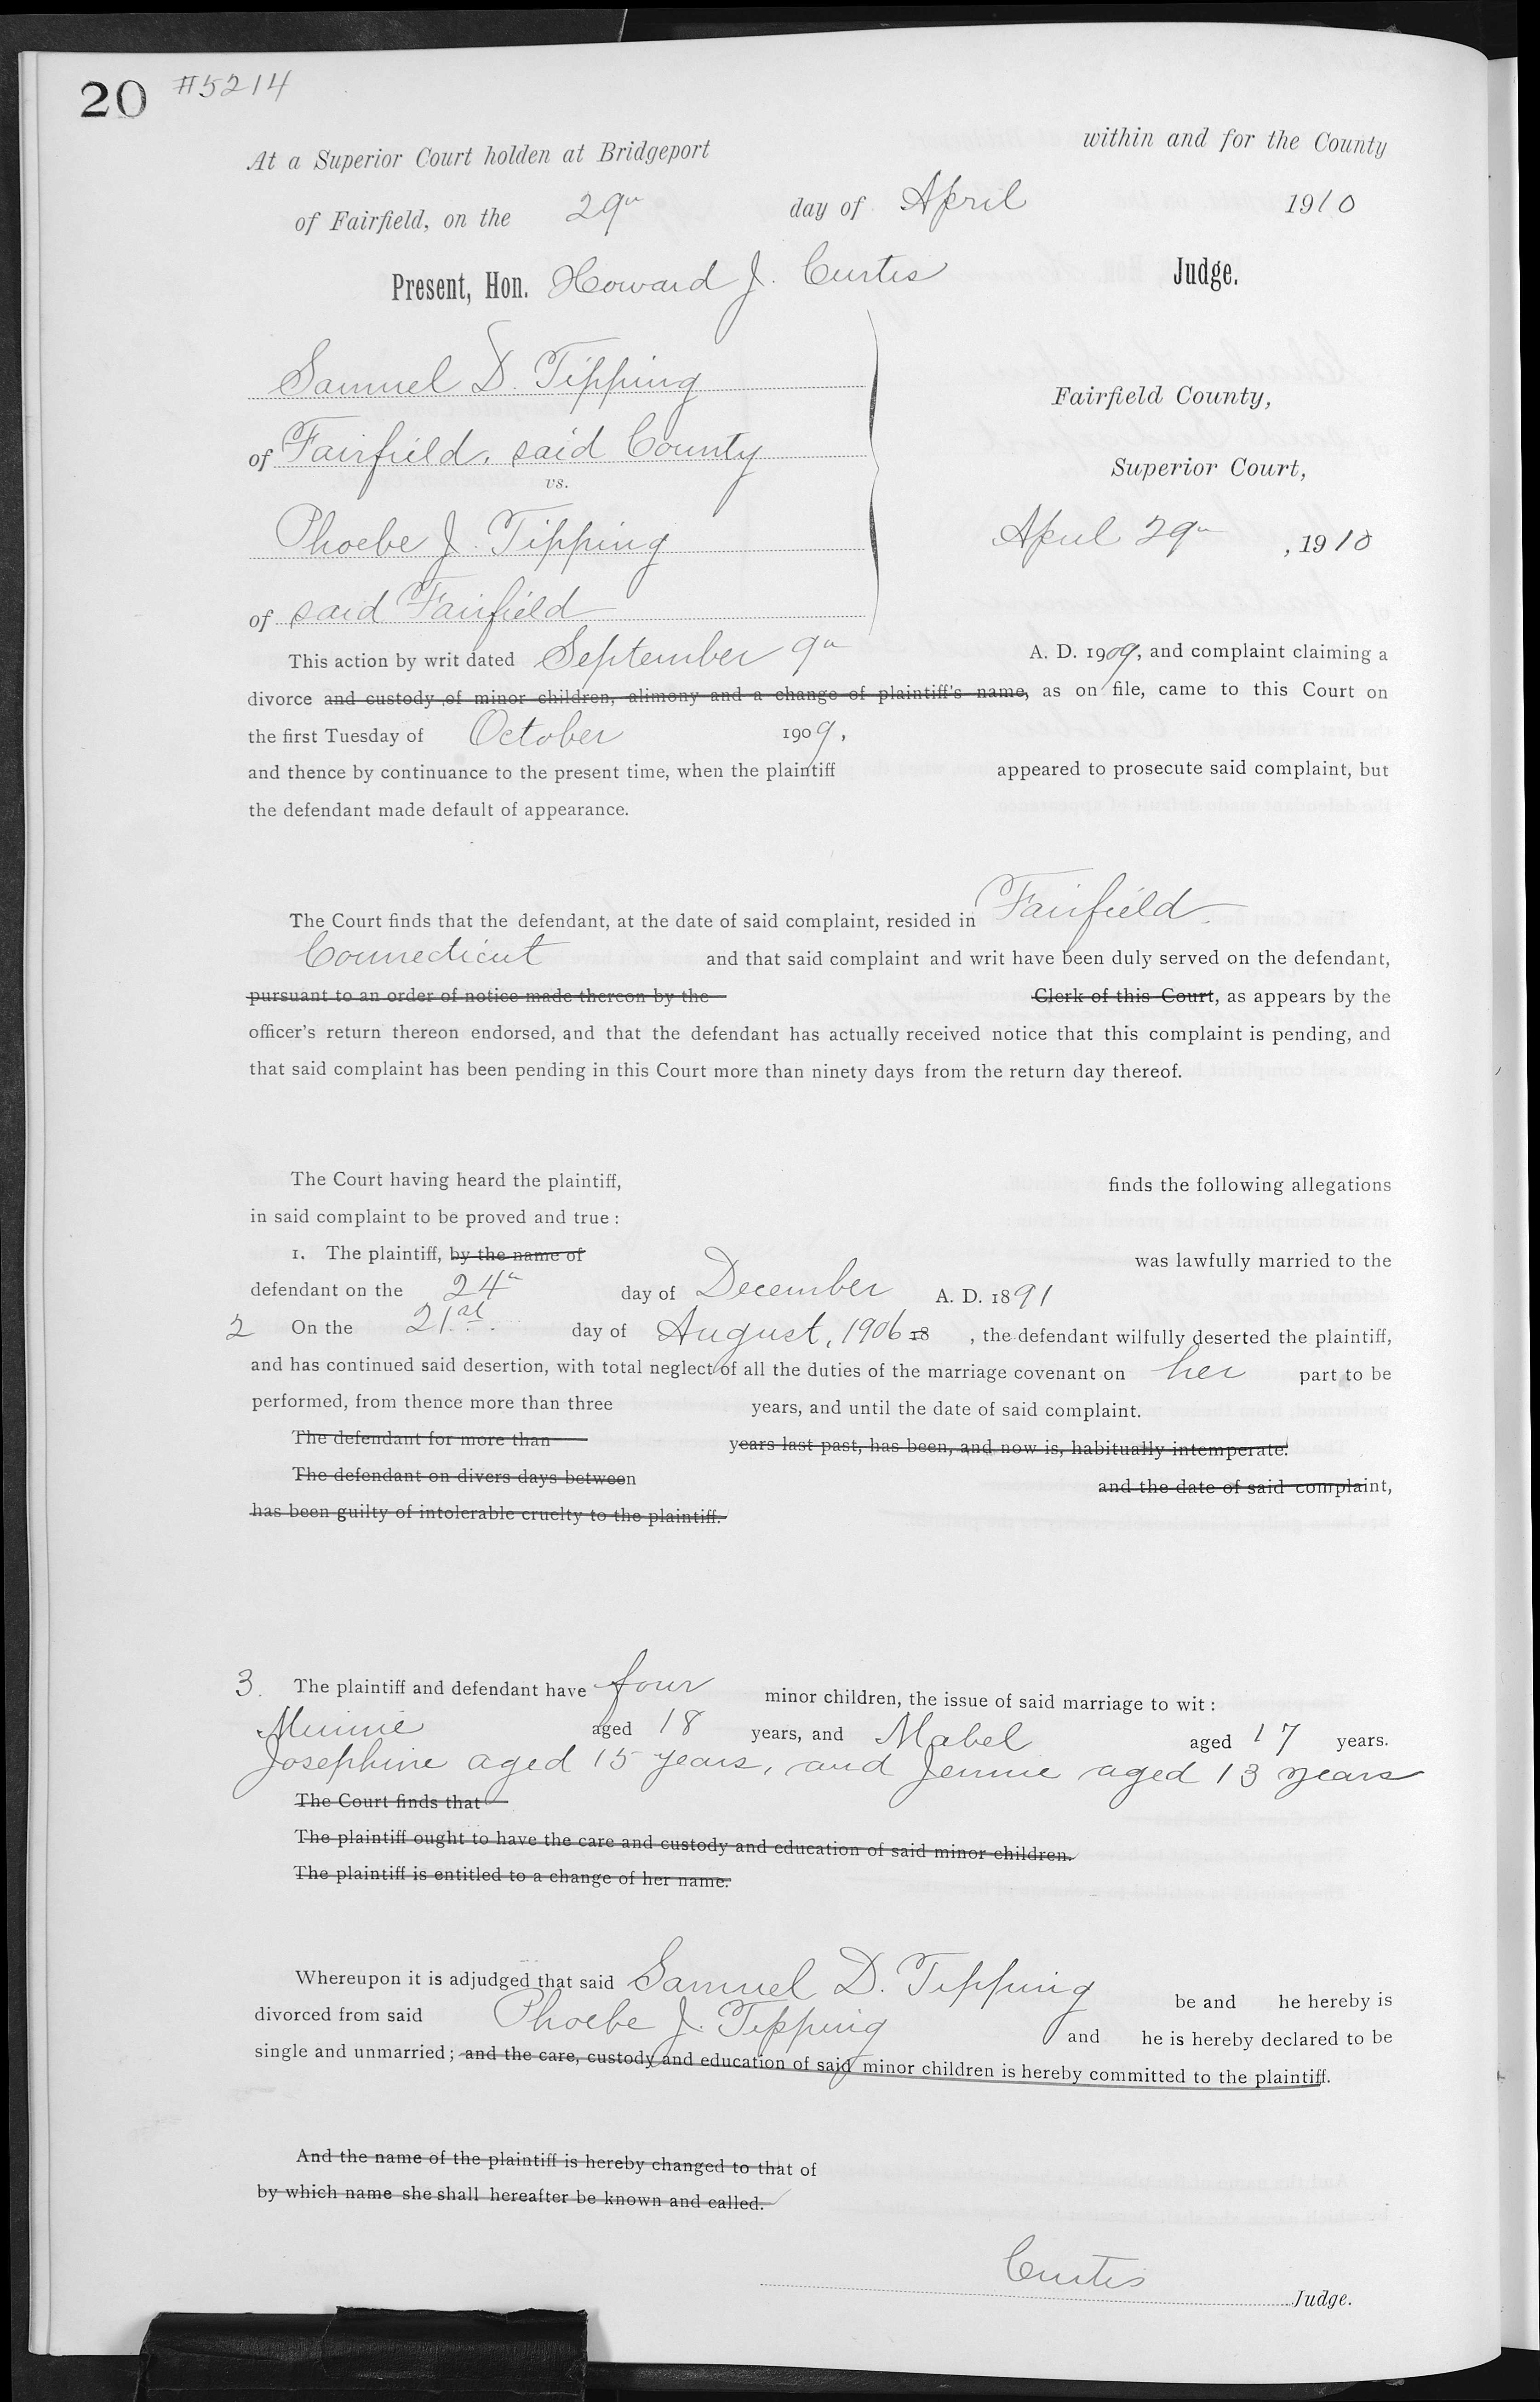 20 #5214
At a Superior Court holden at Bridgeport within and for the County
of Fairfield, on the 29th day of April 1910
Present, Hon. Howard J. Curtis Judge.
Samuel D. Tipping
of Fairfield, said County
vs.
Phoebe J. Tipping
of said Fairfield
Fairfield County,
Superior Court,
April 29th, 1910
This action by writ dated September 9th A. D. 1909, and complaint claiming a
divorce and custody of minor children, alimony and a change of plaintiff's name, as on file, came to this Court on
the first Tuesday of October 1909,
and thence by continuance to the present time, when the plaintiff appeared to prosecute said complaint, but
the defendant made default of appearance.
The Court finds that the defendant, at the date of said complaint, resided in Fairfield
Connecticut and that said complaint and writ have been duly served on the defendant,
pursuant to an order of notice made thereon by the Clerk of this Court, as appears by the
officer's return thereon endorsed, and that the defendant has actually received notice that this complaint is pending, and
that said complaint has been pending in this Court more than ninety days from the return day thereof.
The Court having heard the plaintiff, finds the following allegations
in said complaint to be proved and true:
1. The plaintiff, by the name of was lawfully married to the
defendant on the 24th day of December A. D. 1891
2 On the 21st day of August, 1906 18 , the defendant wilfully deserted the plaintiff,
and has continued said desertion, with total neglect of all the duties of the marriage covenant on her part to be
performed, from thence more than three years, and until the date of said complaint.
The defendant for more than years last past, has been, and now is, habitually intemperate.
The defendant on divers days between and the date of said complaint,
has been guilty of intolerable cruelty to the plaintiff.
3. The plaintiff and defendant have four minor children, the issue of said marriage to wit:
Minnie aged 18 years, and Mabel aged 17 years.
Josephine aged 15 years, and Jennie aged 13 years
The Court finds that
The plaintiff ought to have the care and custody and education of said minor children.
The plaintiff is entitled to a change of her name.
Whereupon it is adjudged that said Samuel D. Tipping be and he hereby is
divorced from said Phoebe J. Tipping and he is hereby declared to be
single and unmarried; and the care, custody and education of said minor children is hereby committed to the plaintiff.
And the name of the plaintiff is hereby changed to that of
by which name she shall hereafter be known and called.
Curtis Judge.